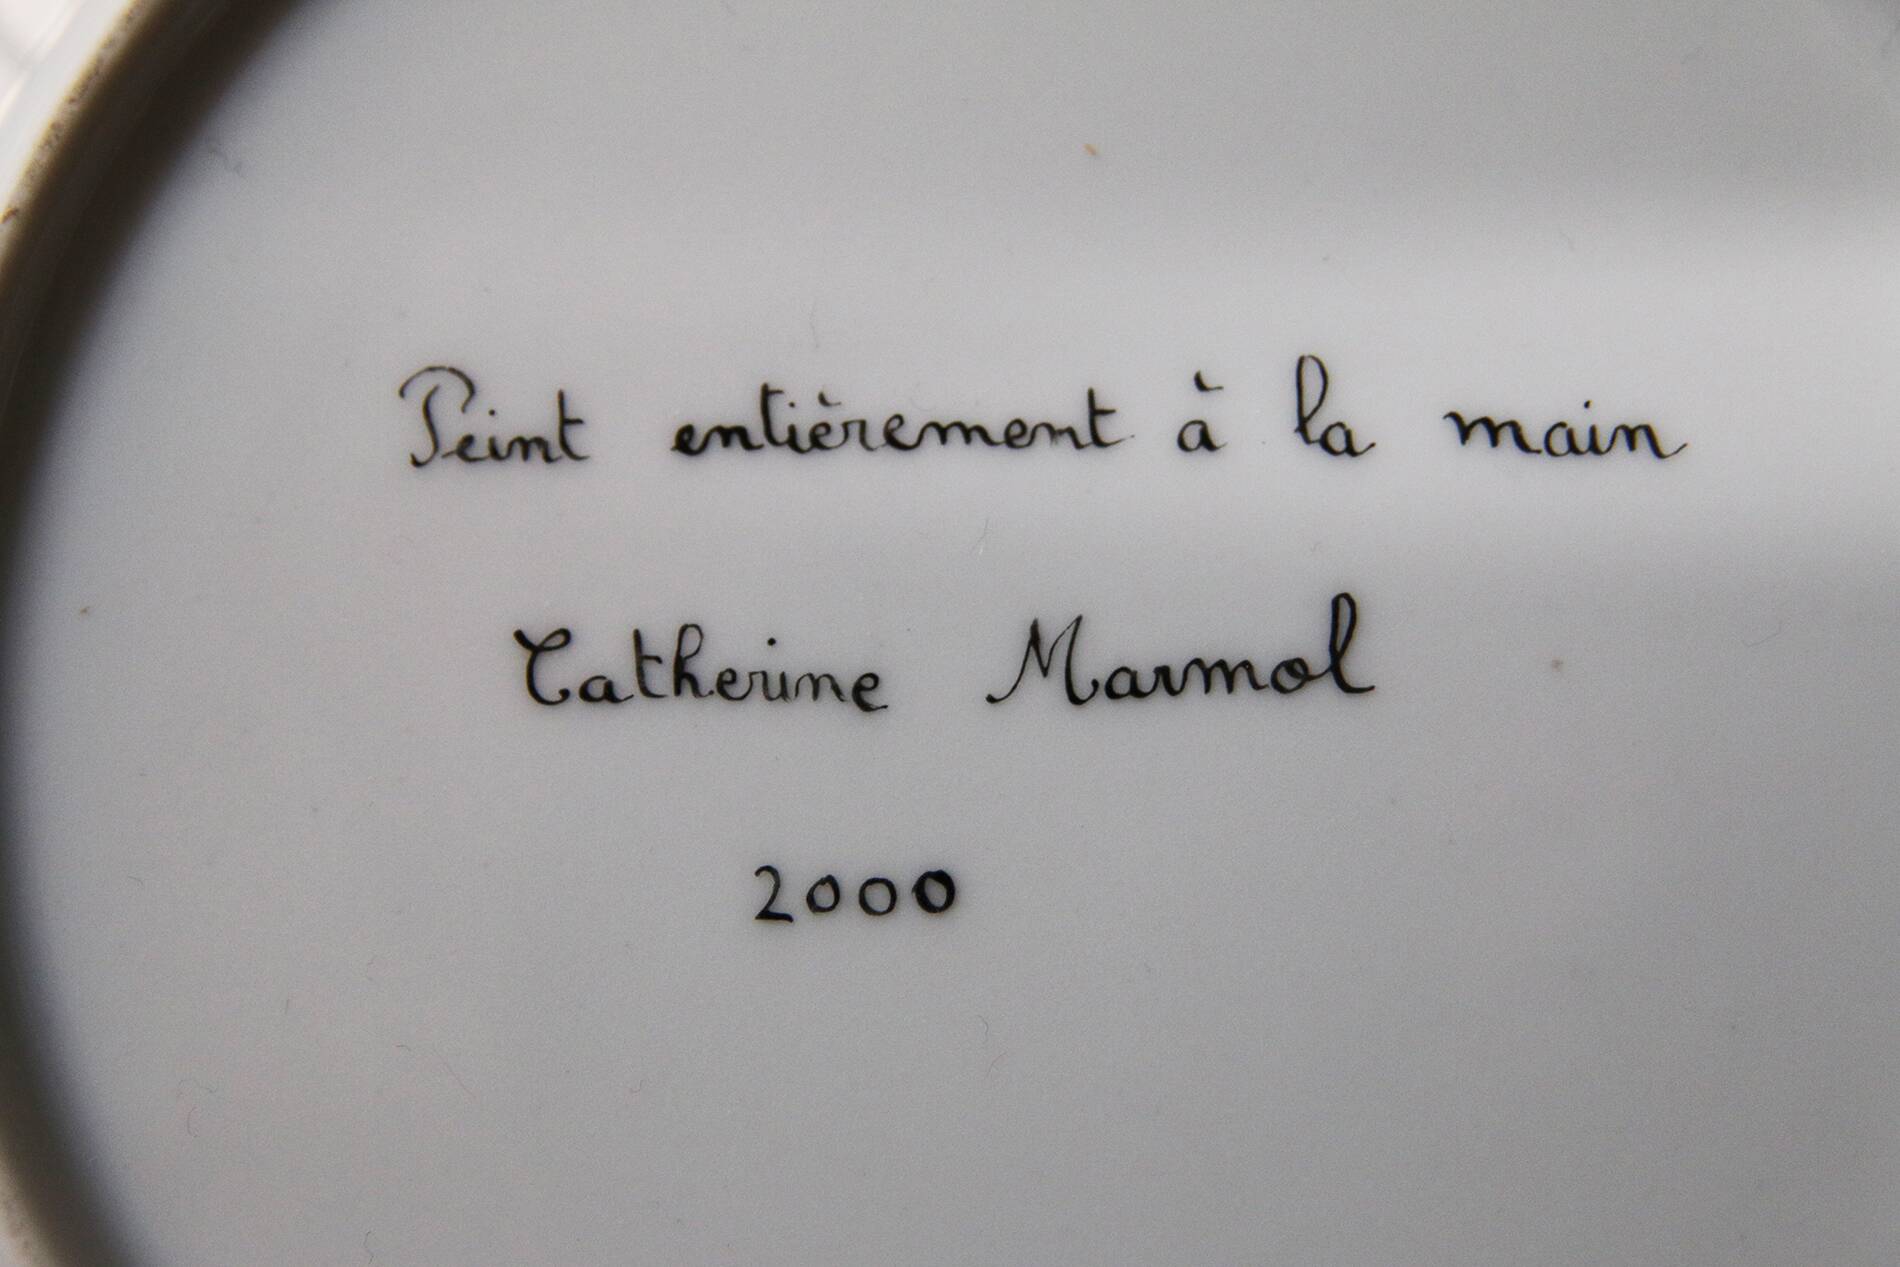 Peint entièrement à la main
Catherine Marmol
2000